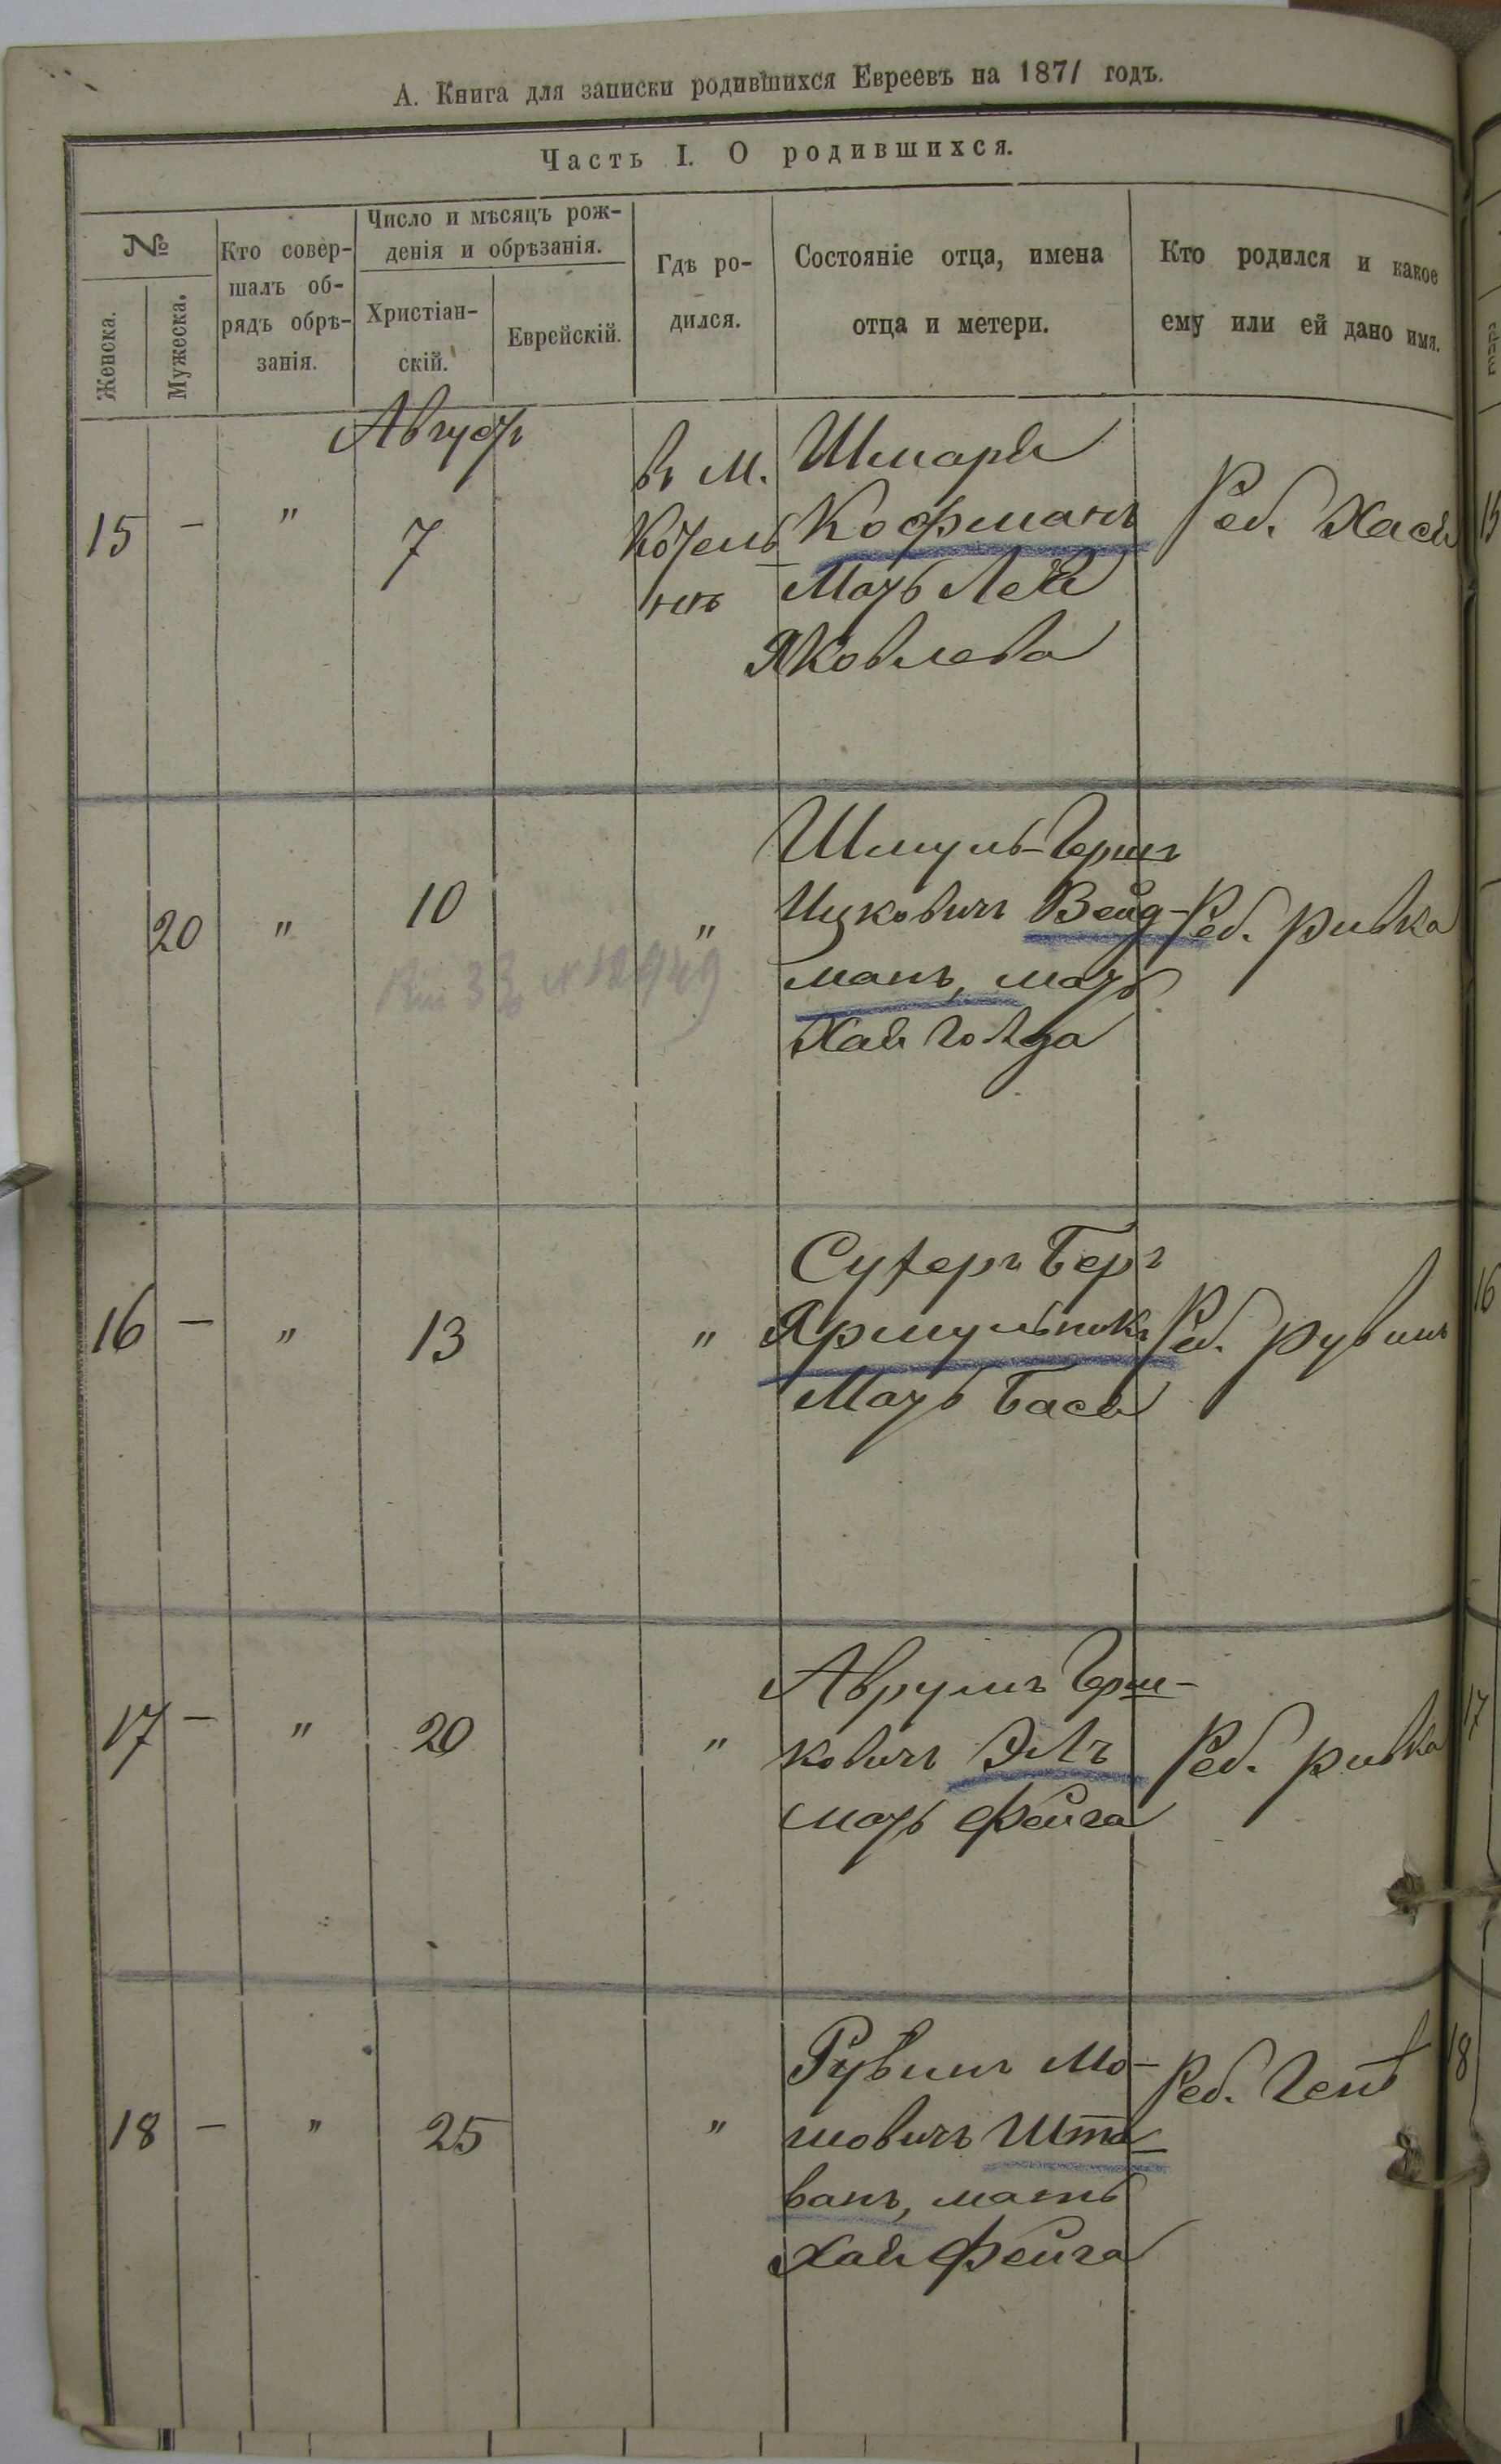 А. Книга для записки родившихся Евреевъ на 1871 годъ.
Часть I. О родившихся.
№
Женска.
Мужеска.
Кто совер-
шалъ об-
рядъ обрѣ-
занія.
Число и мѣсяцъ рож-
денія и обрѣзанія.
Христіан-
скій.
Еврейскій.
Гдѣ ро-
дился.
Состояніе отца, имена
отца и метери.
Кто родился и какое
ему или ей дано имя.
Августъ
15 - " 7
въ м.
Котель-
нѣ
Шмаря
Кофманъ
Мать Лея
Яковлева
Реб. Хася
20 " 10 "
Шмуль-Гершъ
Ицковичъ Вейд-
манъ, мать
Хая Голда
Реб. Ривка
16 - " 13 "
Сухеръ Беръ
Ярмульникъ
Мать Бася
Реб. Рувинъ
17 - " 20 "
Аврумъ Герш-
ковичъ Элъ
мать Фейга
Реб. Ривка
18 - " 25 "
Рувинъ Мо-
шовичъ Шта-
ванъ, мать
Хая Фейга
Реб.
15
16
17
18